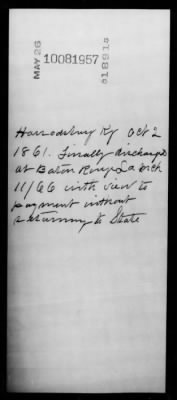 MAY 26
10081957
1891
Harrodsburg Ky Oct 2
1861. Finally discharged
at Baton Rouge La Mch
11/66 with view to
payment without
returning to State